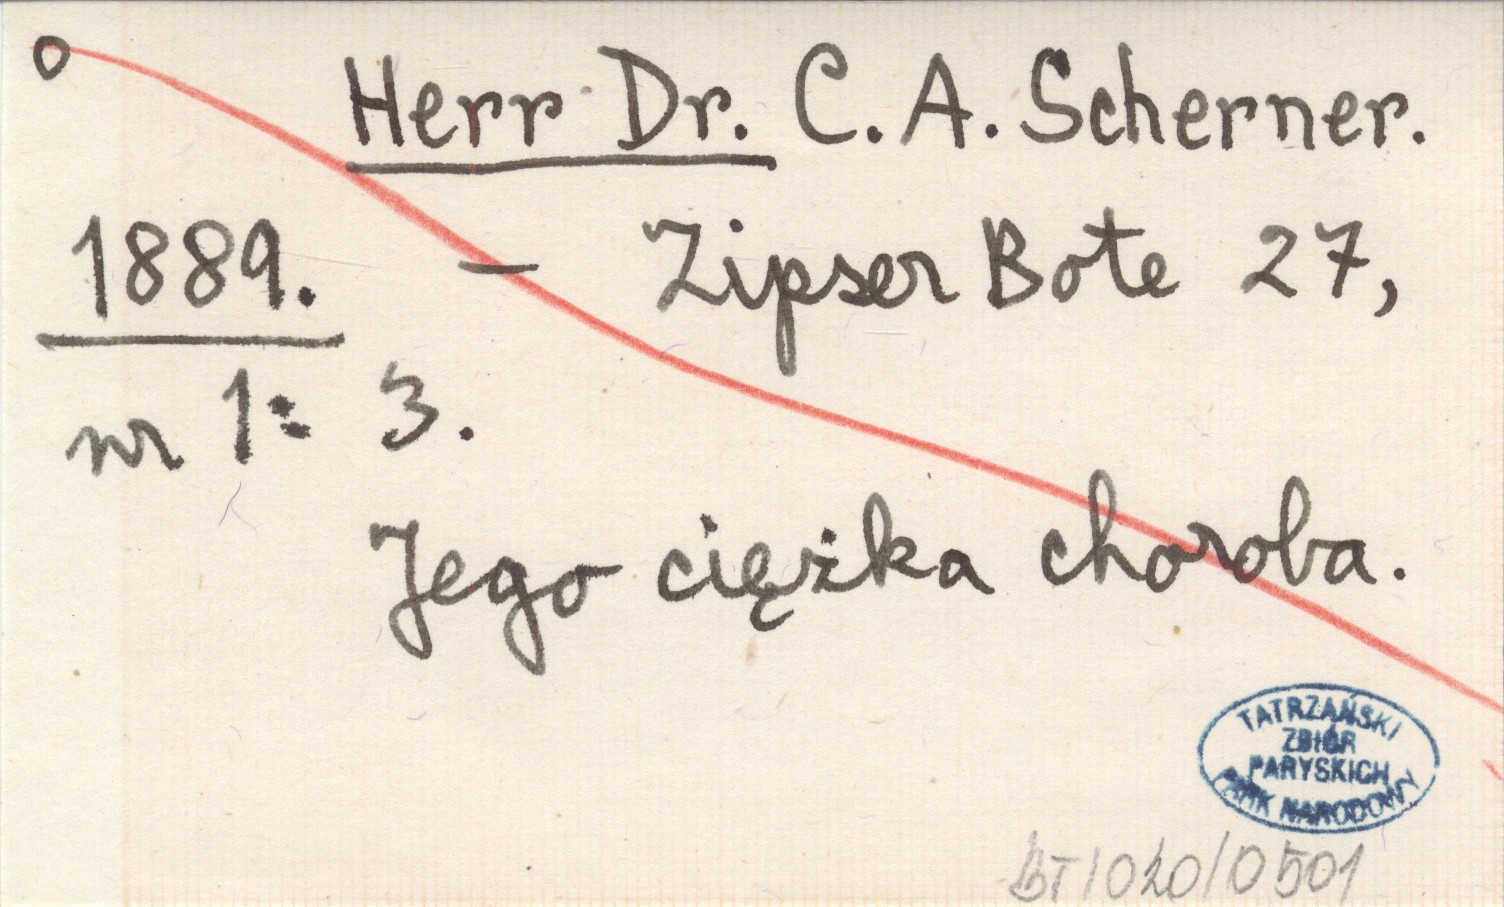 Herr Dr. C. A. Scherner.
1889. — Zipser Bote 27,
nr 1: 3.
Jego ciężka choroba.
TATRZAŃSKI
ZBIÓR
PARYSKICH
PARK NARODOWY
BT/020/0501